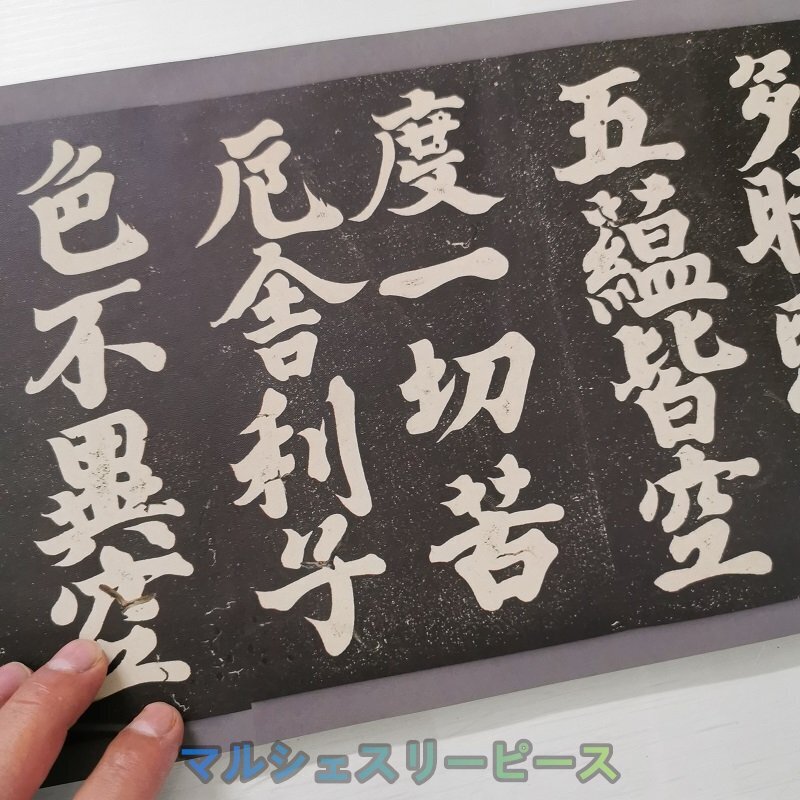 五蘊皆空
度一切苦
厄舎利子
色不異空
マルシェスリーピース